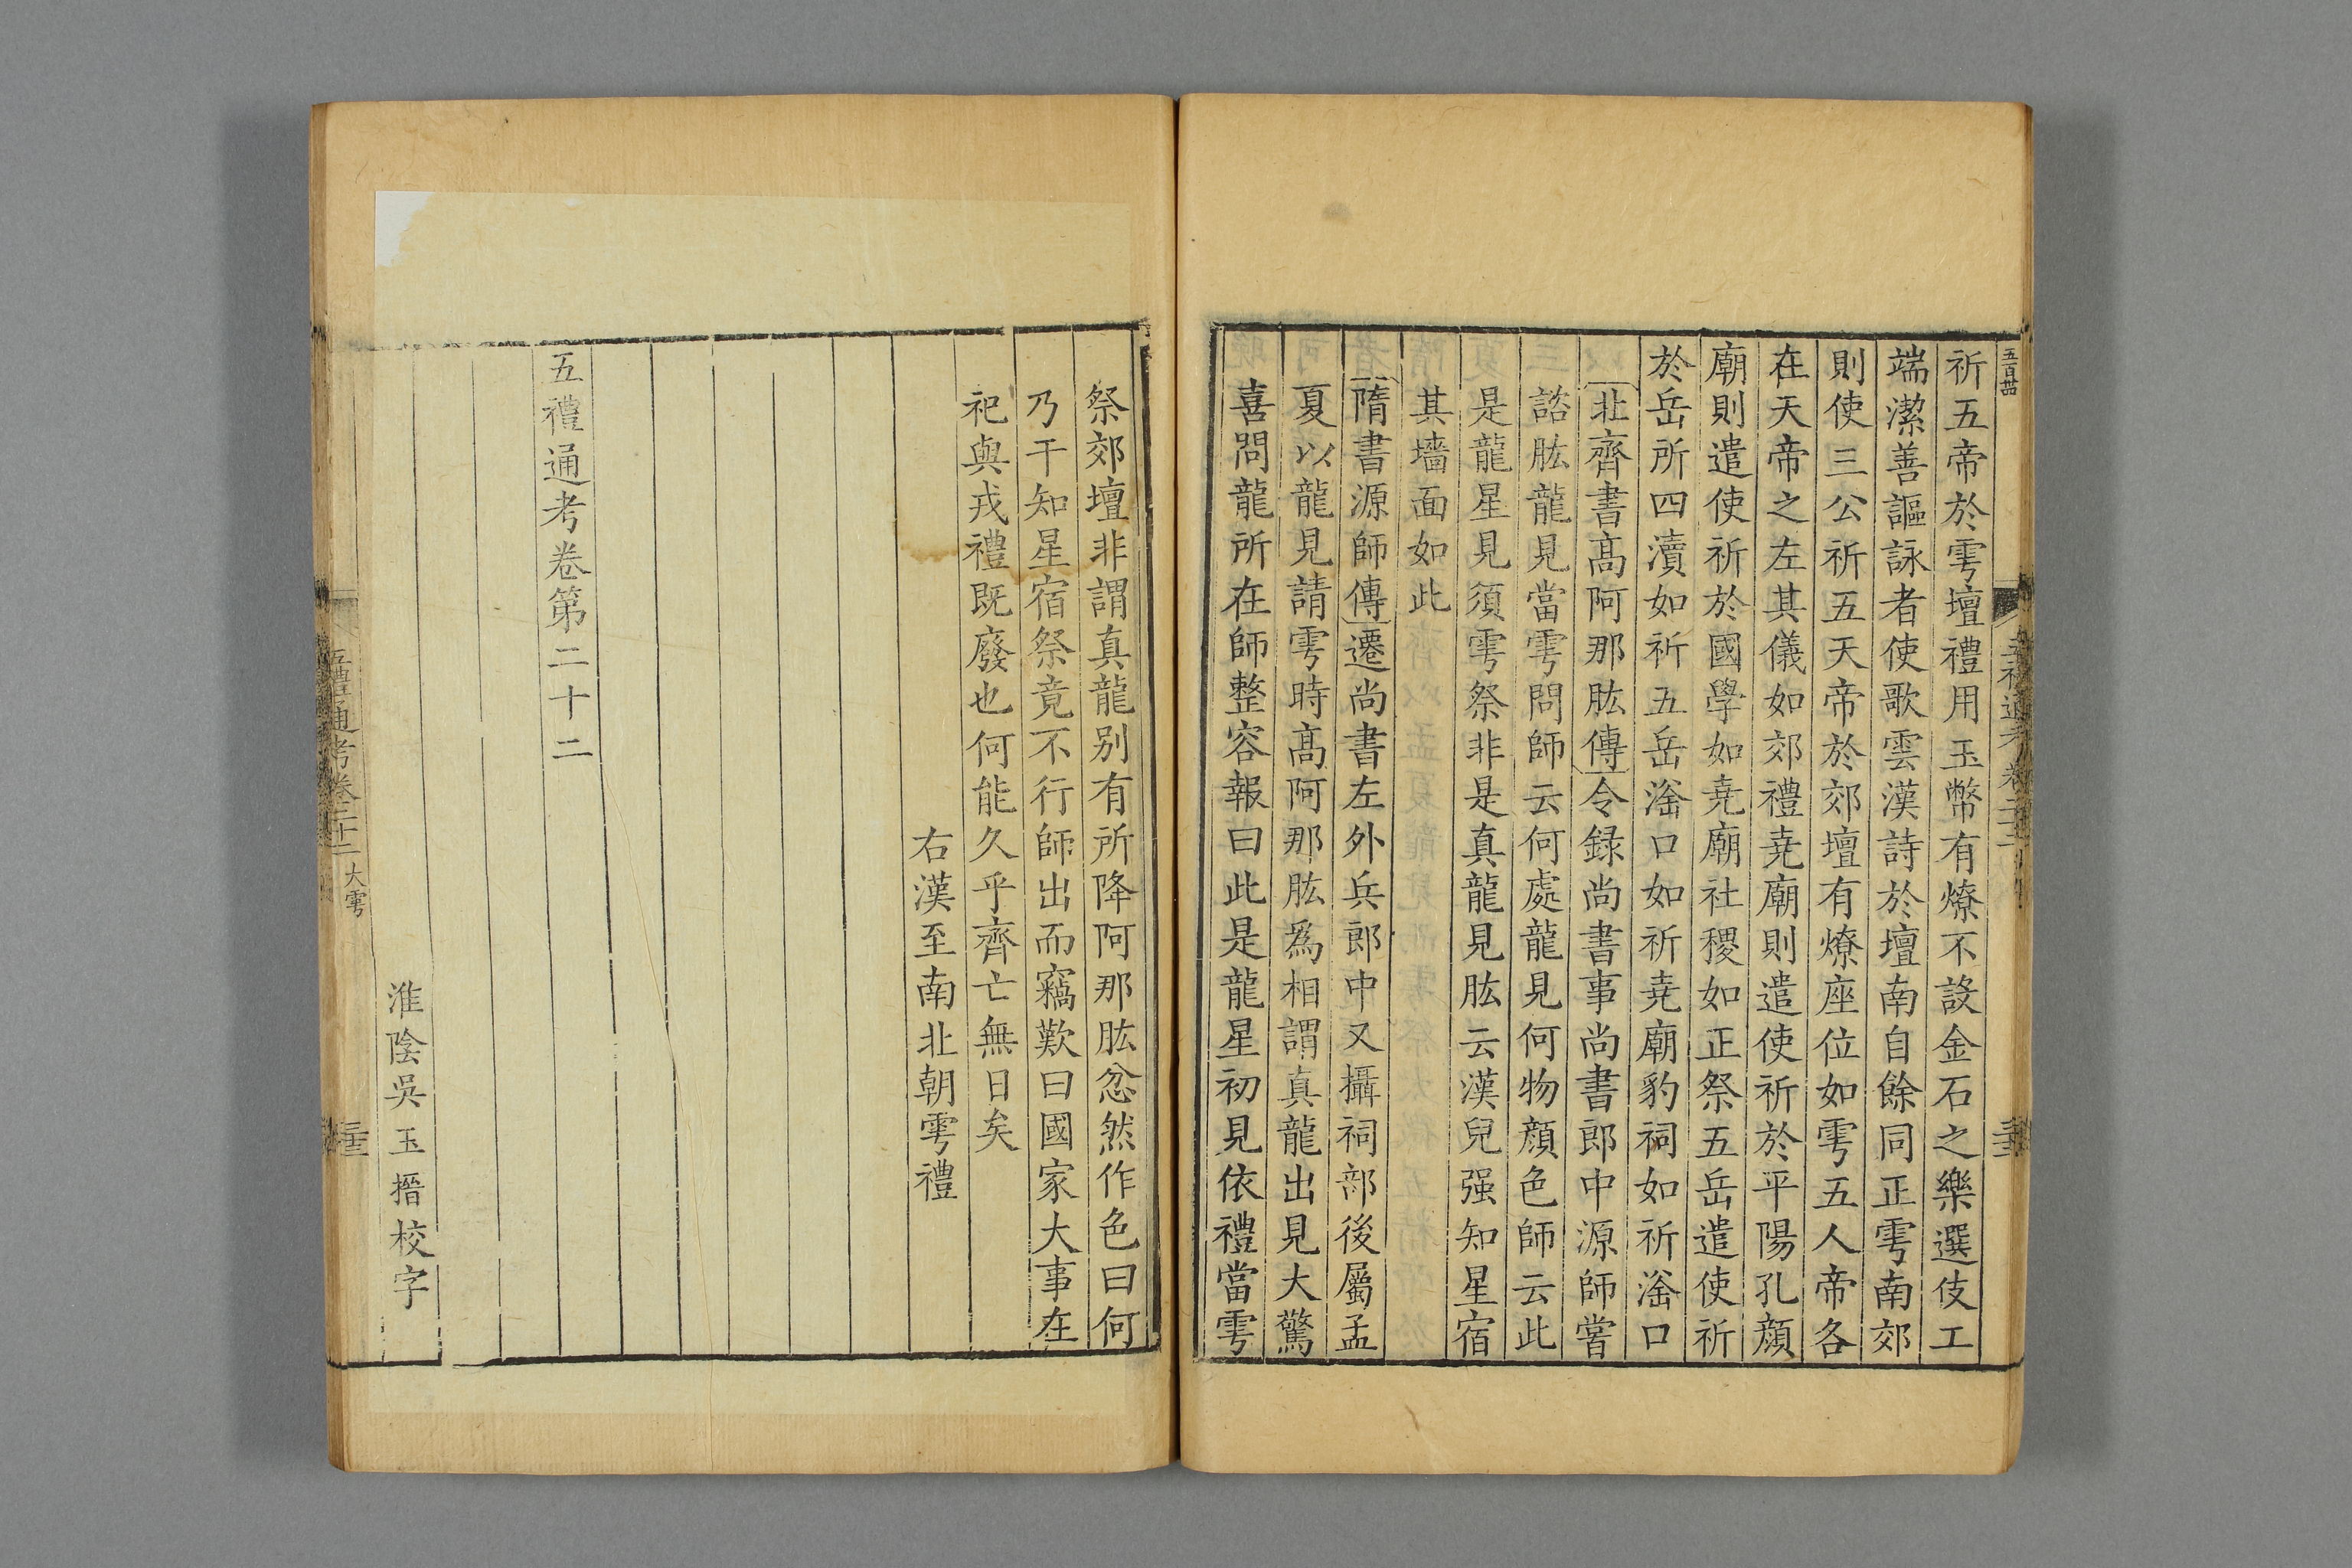 祈五帝於雩壇禮用玉幣有燎不設金石之樂選伎工
端潔善謳詠者使歌雲漢詩於壇南自餘同正雩南郊
則使三公祈五天帝於郊壇有燎座位如雩五人帝各
在天帝之左其儀如郊禮堯廟則遣使祈於平陽孔顏
廟則遣使祈於國學如堯廟社稷如正祭五岳遣使祈
於岳所四瀆如祈五岳滏口如祈堯廟豹祠如祈滏口
北齊書高阿那肱傳令録尚書事尚書郎中源師嘗
諮肱龍見當雩問師云何處龍見何物顏色師云此
是龍星見須雩祭非是真龍見肱云漢兒强知星宿
其墻面如此
隋書源師傳遷尚書左外兵郎中又攝祠部後屬孟
夏以龍見請雩時高阿那肱爲相謂真龍出見大驚
喜問龍所在師整容報曰此是龍星初見依禮當雩
祭郊壇非謂真龍别有所降阿那肱忿然作色曰何
乃干知星宿祭竟不行師出而竊歎曰國家大事在
祀與戎禮既廢也何能久乎齊亡無日矣
右漢至南北朝雩禮
五禮通考卷第二十二
淮陰吳玉搢校字
五禮通考卷二十二 大雩